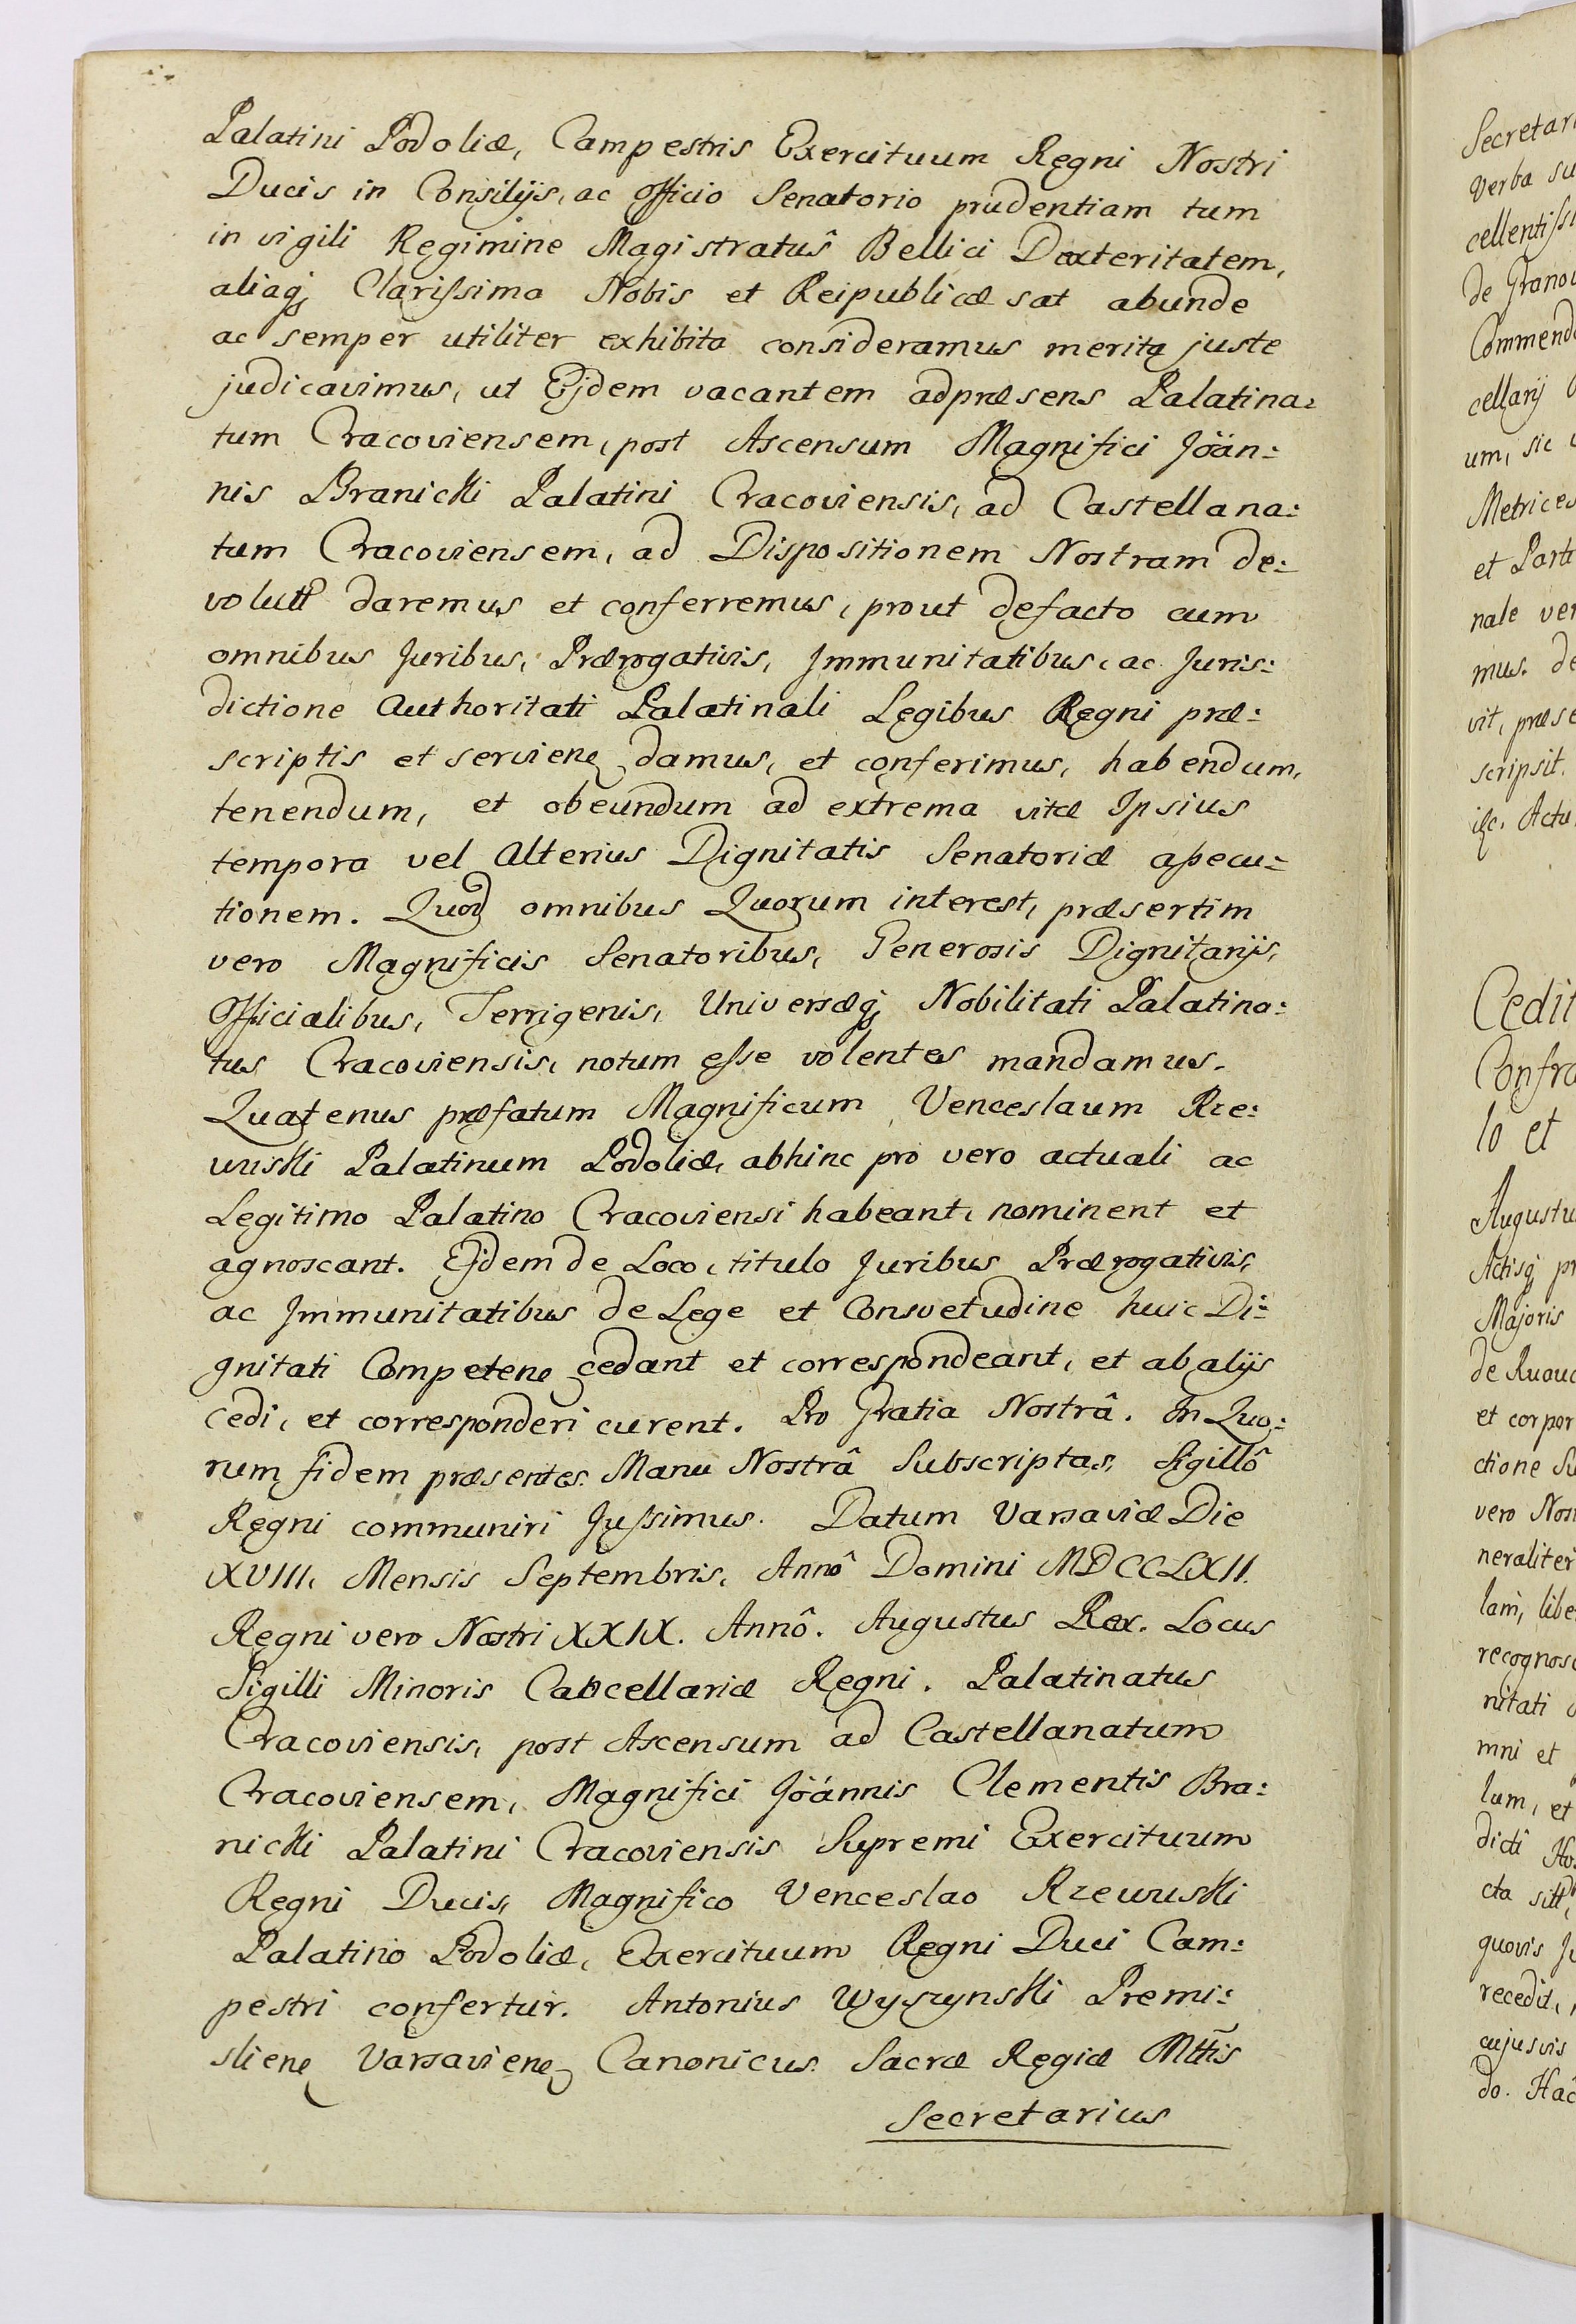 Palatini Podoliæ, Campestris Exercituum Regni Nostri
Ducis in Consilijs, ac Officio Senatorio prudentiam tum
in vigili Regimine Magistratûs Bellici Dexteritatem,
aliaq; Clarissima Nobis et Reipublicæ sat abunde
ac semper utiliter exhibita consideramus merita juste
judicavimus, ut Ejdem vacantem adpræsens Palatina:
tum Cracoviensem, post Ascensum Magnifici Joän:
nis Branicki Palatini Cracoviensis, ad Castellana:
tum Cracoviensem, ad Dispositionem Nostram de:
volutt daremus et conferremus, prout defacto cum
omnibus Juribus, Prærogativis, Immunitatibus, ac Juris:
dictione Authoritati Palatinali Legibus Regni præ:
scriptis et serviene damus, et conferimus, habendum,
tenendum, et obeundum ad extrema vitæ Ipsius
tempora vel Alterius Dignitatis Senatoriæ assecu:
tionem. Quod omnibus Quorum interest, præsertim
vero Magnificis Senatoribus, Generosis Dignitarijs,
Officialibus, Terrigenis, Universæq; Nobilitati Palatina:
tus Cracoviensis, notum esse volentes mandamus.
Quatenus præfatum Magnificum Venceslaum Rze:
wuski Palatinum Podoliæ, abhinc pro vero actuali ac
Legitimo Palatino Cracoviensi habeant, nominent et
agnoscant. Ejdem de Loco, titulo Juribus Prærogativis,
ac Immunitatibus de Lege et Consvetudine huic Di:
gnitati Competene cedant et correspondeant, et ab alijs
cedi, et corresponderi curent. Pro Gratia Nostrâ. In Quo:
rum fidem præsentes Manu Nostrâ Subscriptas, Sigillô
Regni communiri Jussimus. Datum Varsaviæ Die
XVIII. Mensis Septembris, Annô Domini MDCCLXII.
Regni vero Nostri XXIX. Annô. Augustus Rex. Locus
Sigilli Minoris Cancellariæ Regni. Palatinatus
Cracoviensis, post Ascensum ad Castellanatum
Cracoviensem, Magnifici Joánnis Clementis Bra:
nicki Palatini Cracoviensis Supremi Exercituum
Regni Ducis, Magnifico Venceslao Rzewuski
Palatino Podoliæ, Exercituum Regni Duci Cam:
pestri confertur. Antonius Wyszynski Premi:
sliene Varsaviene Canonicus. Sacræ Regiæ Mttis
Secretarius
Secretar
verba su
cellentissi
de Granow
Commend
cellarij
um, sic
Metrices
et Parti
nale ver
mus. de
vit, præse
scripsit.
Actu
Cedit
Confra
lo et
Augustu
Actisq pr
Majoris
de Ruauc
et corpor
ctione Su
vero Nost
neraliter
lam, libe
recognosc
nitati
mni et
lum, et
dicti Ho
cta sitt,
quovis Ju
recedit,
cujusvis
do. Hâc